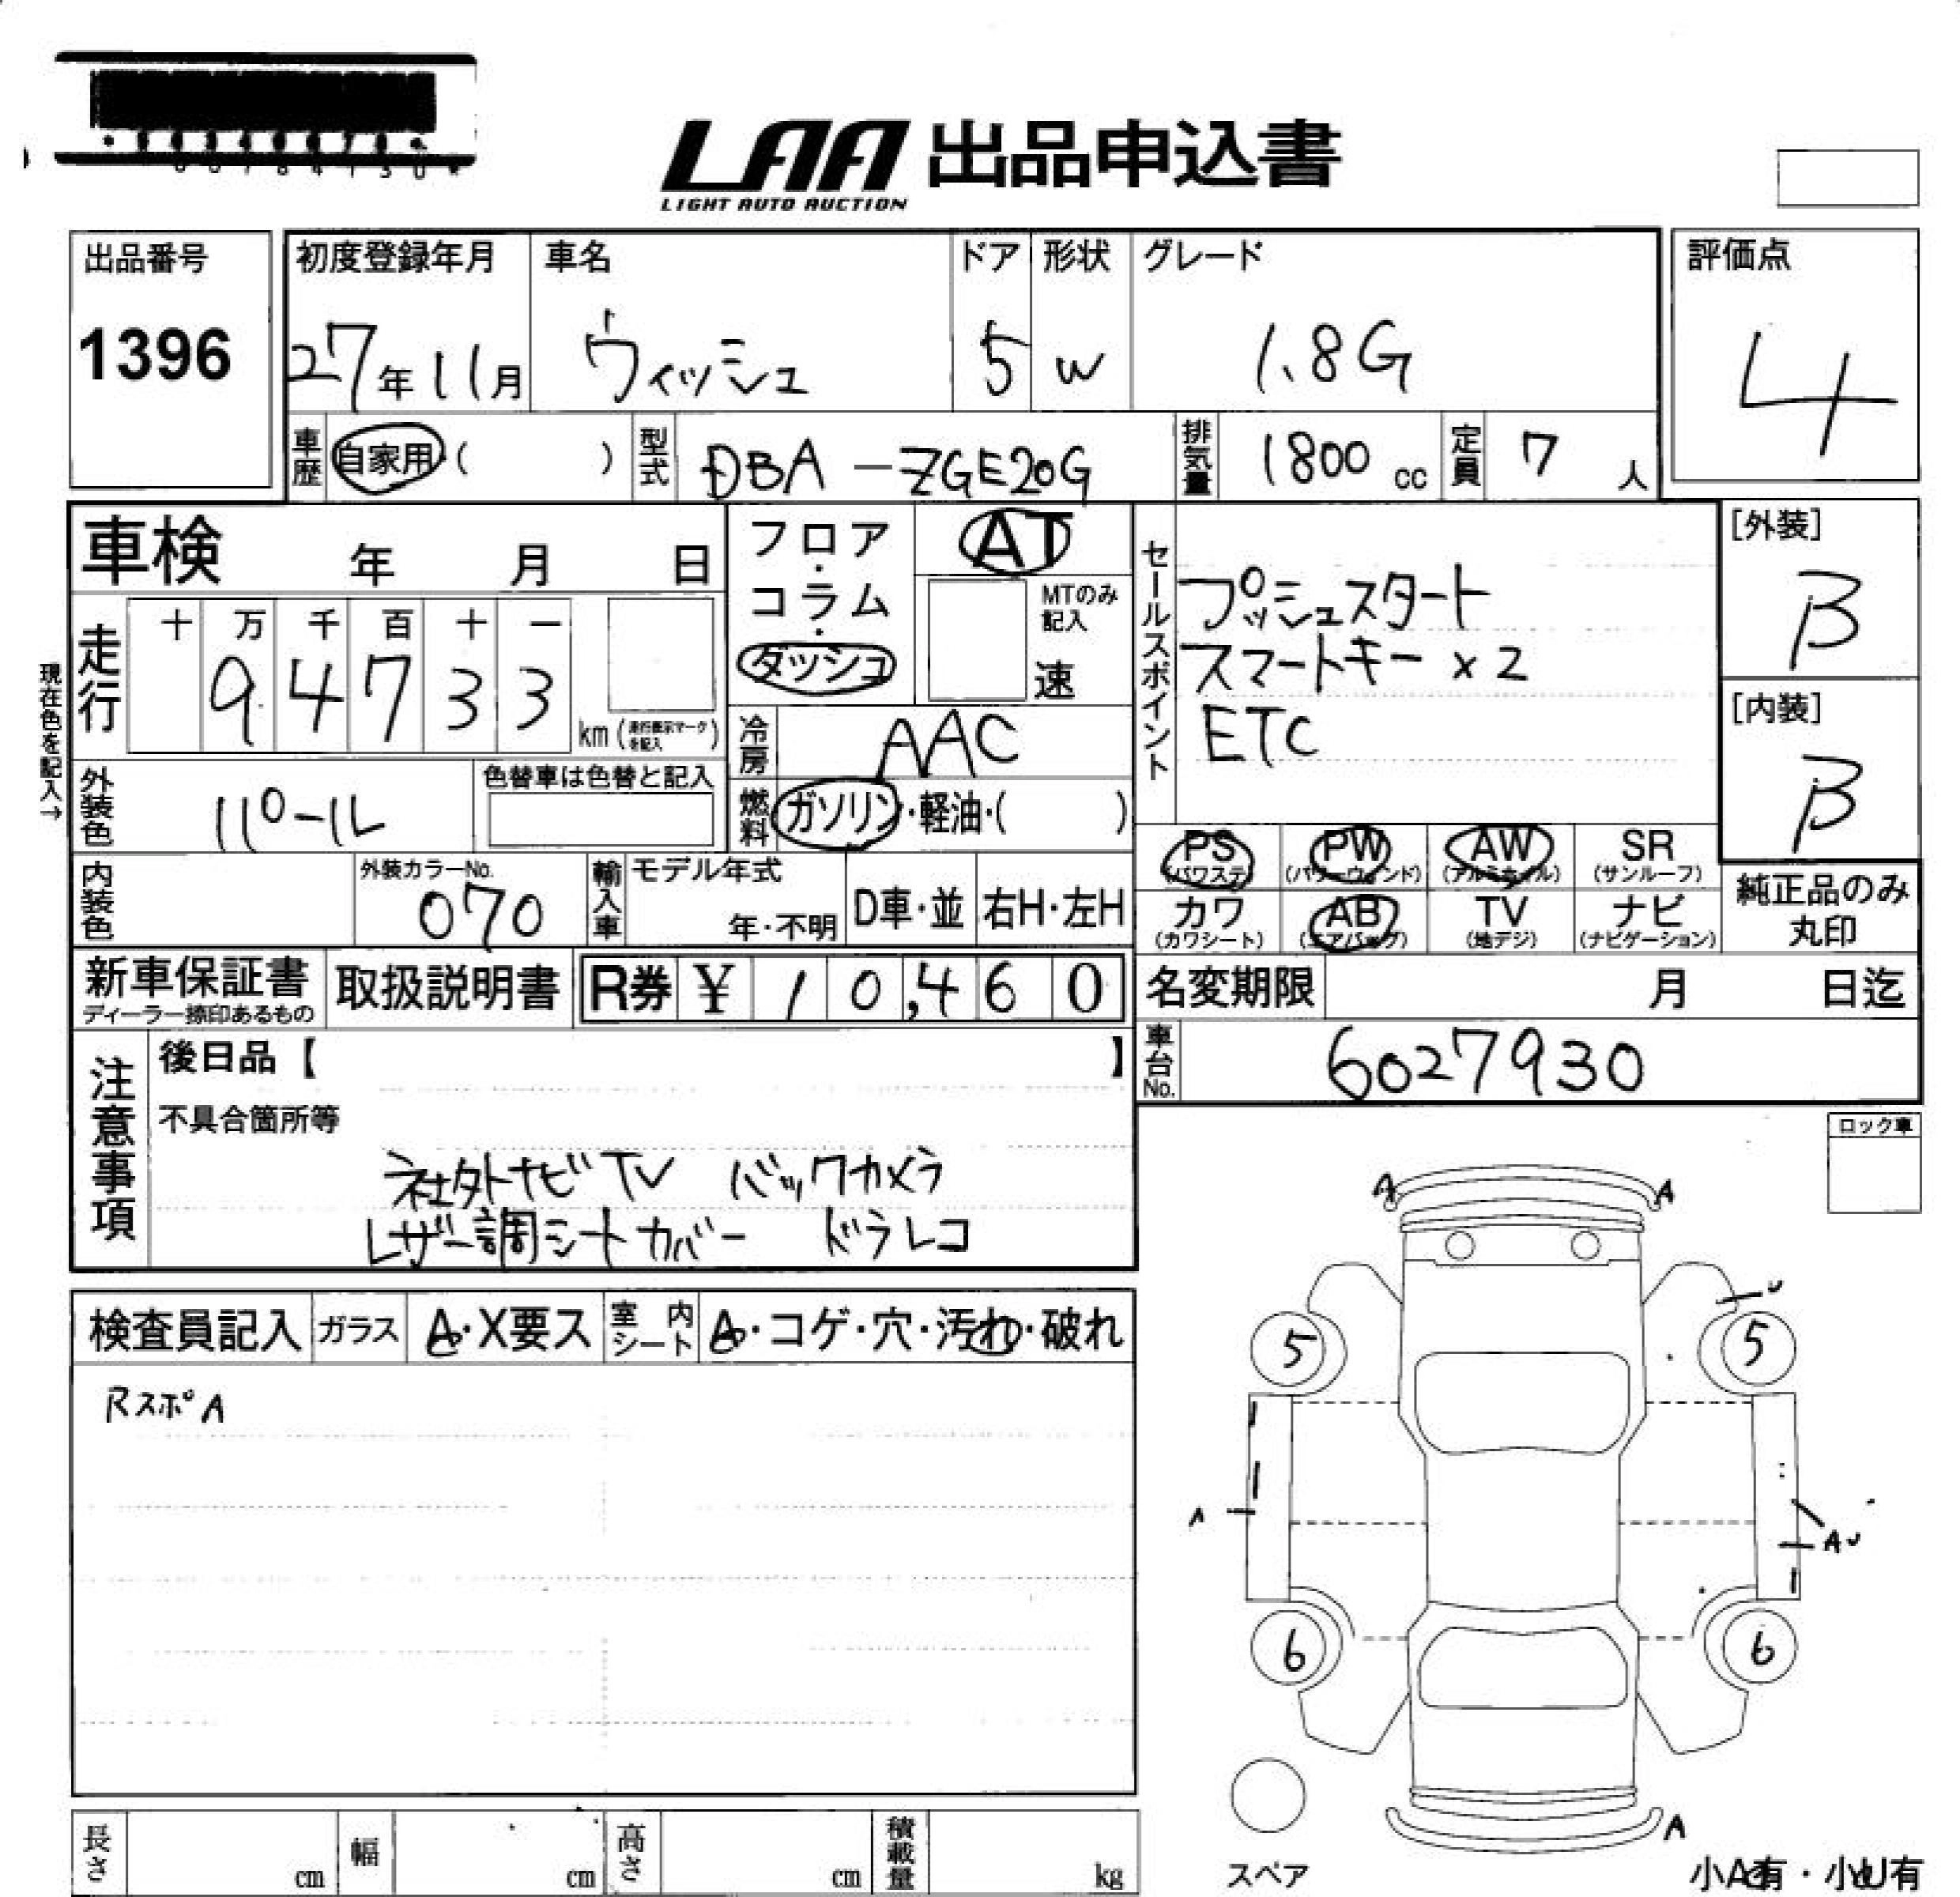 LAA 出品申込書
LIGHT AUTO AUCTION
出品番号 初度登録年月 車名 ドア 形状 グレード 評価点
1396 27年11月 ウィッシュ 5 W 1.8G 4
車歴 自家用・( ) 型式 DBA-ZGE20G 排気量 1800cc 定員 7人
車検 年 月 日
フロア・コラム・ダッシュ
AT
MTのみ記入
速
セールスポイント
プッシュスタート
スマートキー×2
ETC
[外装]
B
[内装]
B
現在色を記入→
走行 十 万 千 百 十 一
94733 km(走行表示マークを記入)
冷房 AAC
外装色 パール 色替車は色替と記入
燃料 ガソリン・軽油・( )
PS AW PW SR
(パワステ) (パワーウィンド) (アルミホイル) (サンルーフ)
カワ AB TV ナビ
(カワシート) (エアバッグ) (地デジ) (ナビゲーション)
純正品のみ丸印
内装色 外装カラーNo. 070 輸入車 モデル年式 年・不明 D車・並 右H・左H
新車保証書 取扱説明書 R券 ¥10,460
ディーラー捺印あるもの
名変期限 月 日迄
車台No. 6027930
注意事項
後日品【 】
不具合箇所等
社外ナビTV バックカメラ
レザー調シートカバー ドラレコ
ロック車
検査員記入 ガラス A・X要ス 室内シート A・コゲ・穴・汚れ・破れ
RスポA
A A
U
5 5
A AU
6 6
A
スペア
小A有・小U有
長さ cm 幅 cm 高さ cm 積載量 kg